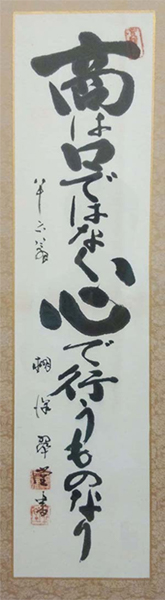 商は口ではなく心で行うものなり